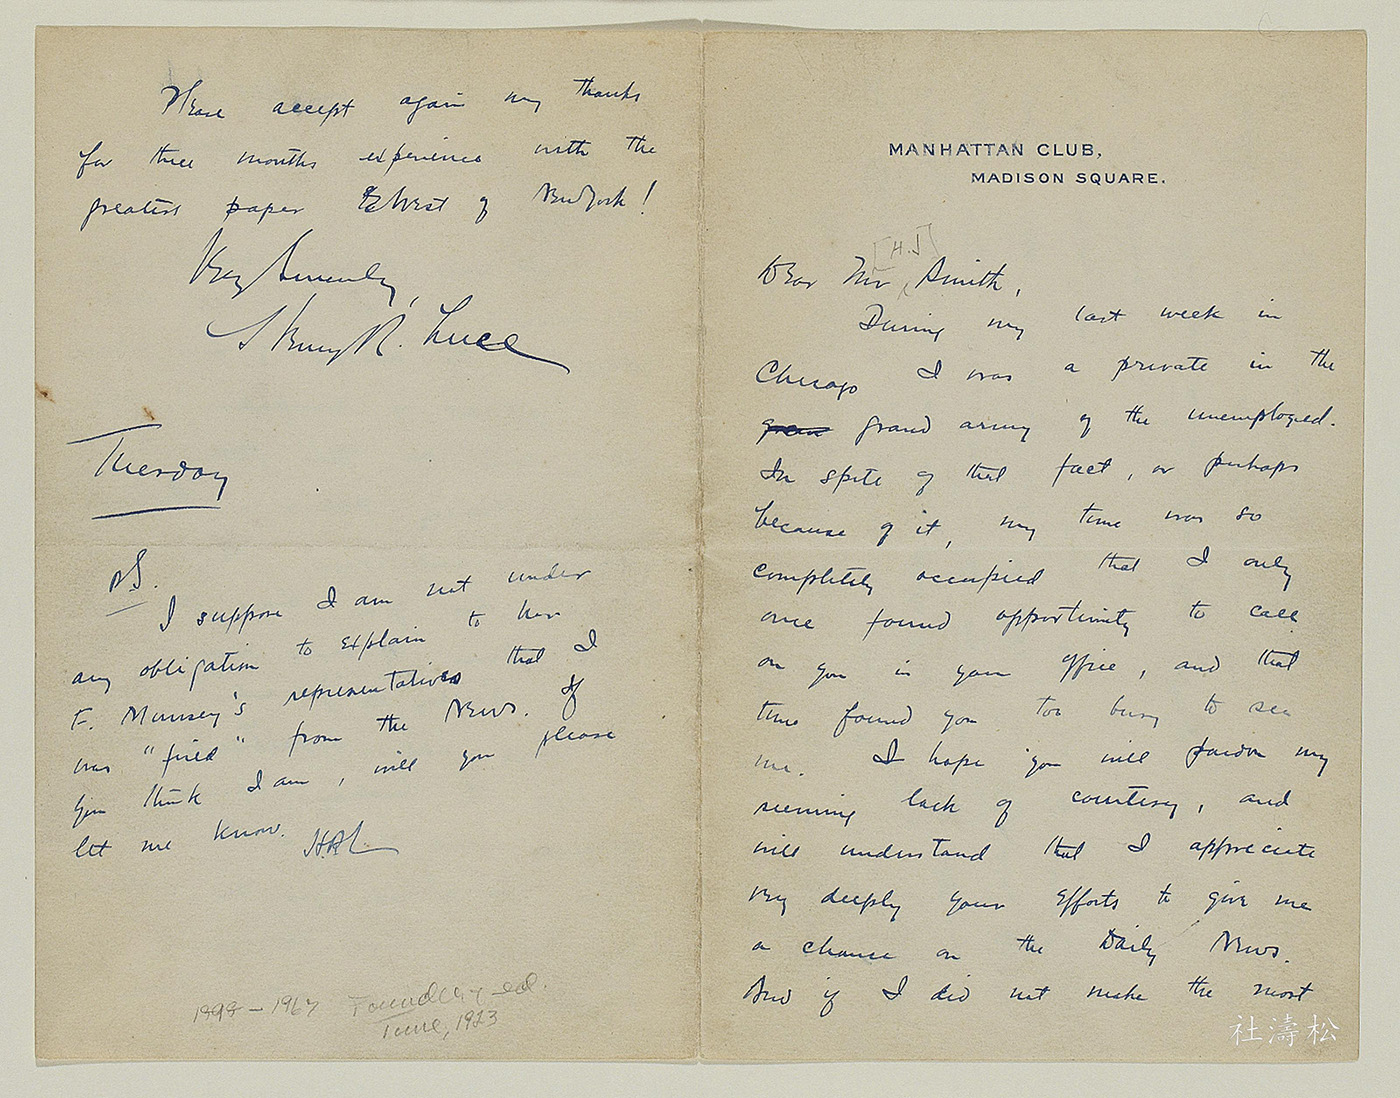 MANHATTAN CLUB,
MADISON SQUARE.
[H.J]
Dear Mr Smith,
During my last week in
Chicago I was a private in the
grand army of the unemployed.
In spite of that fact, or perhaps
because of it, my time was so
completely occupied that I only
once found opportunity to call
on you in your office, and that
time found you too busy to see
me. I hope you will pardon my
seeming lack of courtesy, and
will understand that I appreciate
very deeply your efforts to give me
a chance on the Daily News.
And if I did not make the most
Please accept again my thanks
for three months experience with the
greatest paper West of New York!
Very Sincerely,
Henry R. Luce
Tuesday
P.S.
I suppose I am not under
any obligation to explain to her
F. Munsey's representatives that I
was "fired" from the News. If
you think I am, will you please
let me know. H.R.L
1898 – 1967 Found ed.
Time, 1923
社濤松